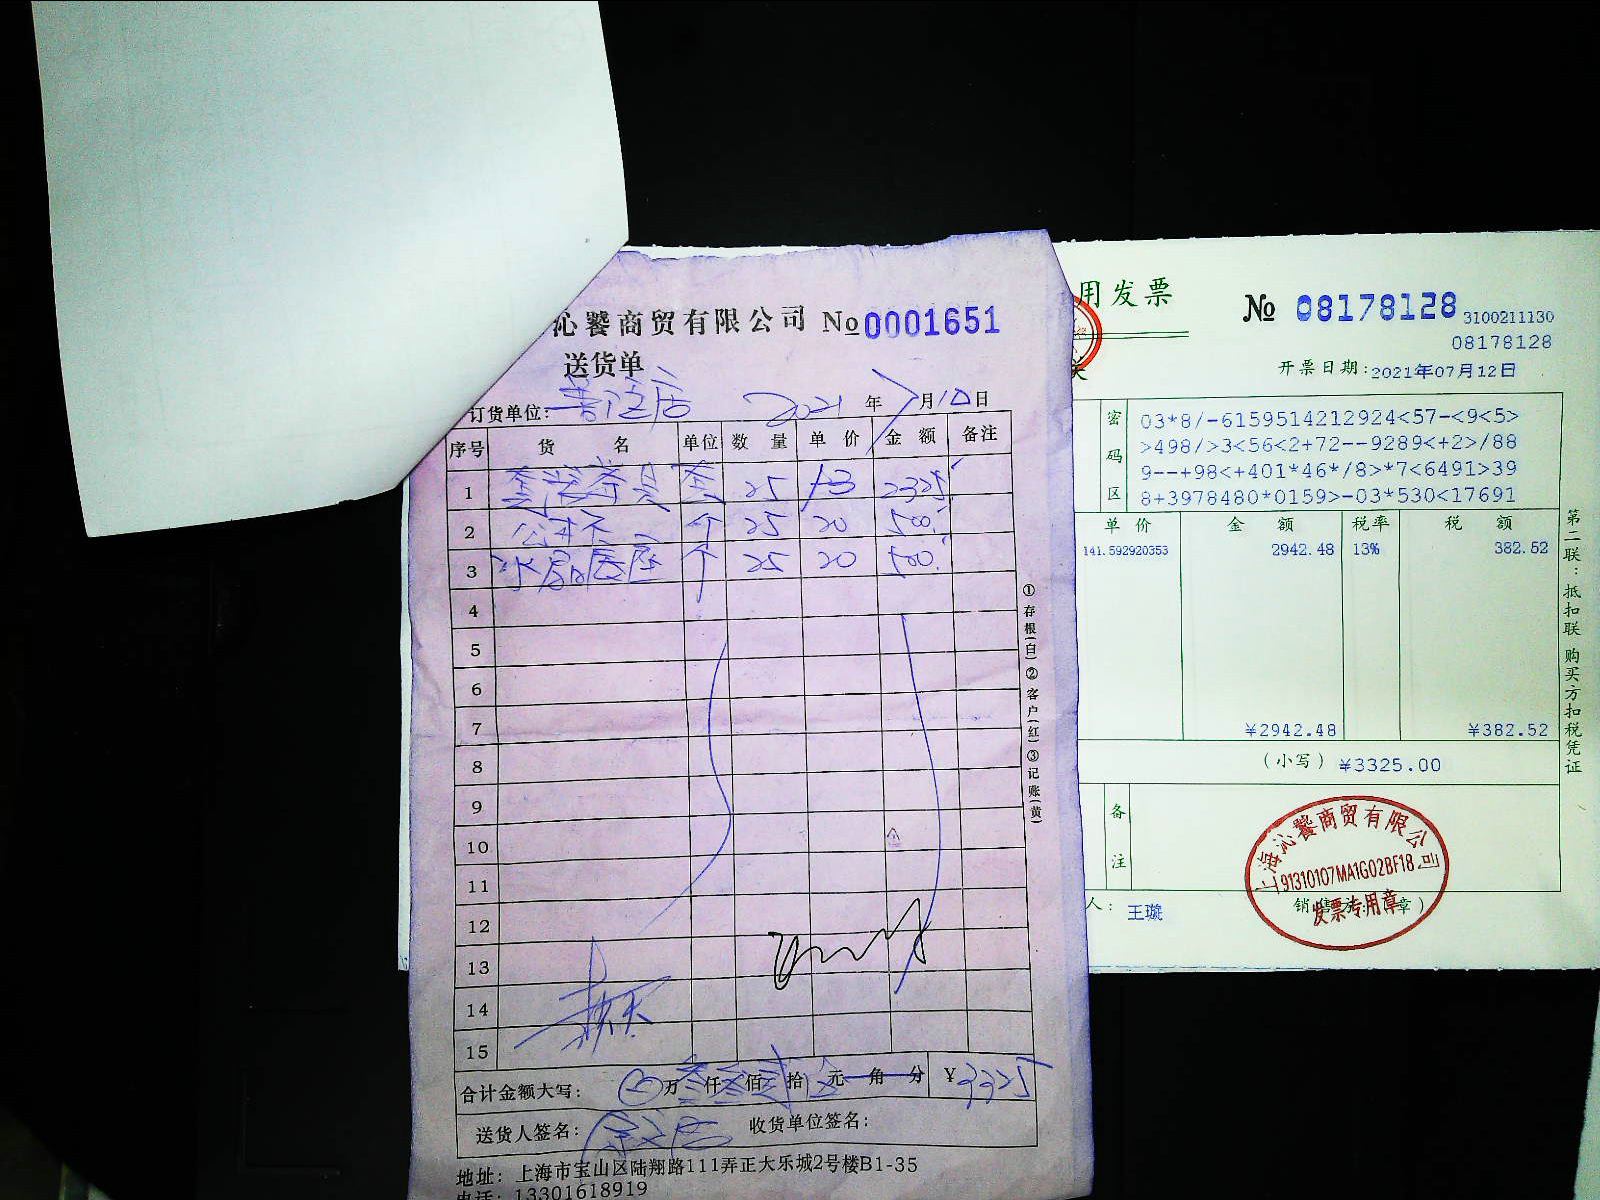 沁饕商贸有限公司 No 0001651
送货单
订货单位: 2021 年 7 月 10 日
序号 货 名 单位 数 量 单 价 金 额 备注
1 套装茶具 套 25 2325
2 个 25 20 500
3 水晶底座 个 25 20 500
4
5
6
7
8
9
10
11
12
13
14
15
合计金额大写: 万 叁仟叁佰贰拾伍元 角 分 ¥ 3325
送货人签名: 收货单位签名:
地址: 上海市宝山区陆翔路111弄正大乐城2号楼B1-35
电话: 13301618919
①存根(白)②客户(红)③记账(黄)
用发票
№ 08178128 3100211130
08178128
开票日期: 2021年07月12日
密码区
03*8/-6159514212924<57-<9<5>
>498/>3<56<2+72--9289<+2>/88
9--+98<+401*46*/8>*7<6491>39
8+3978480*0159>-03*530<17691
单 价 金 额 税率 税 额
141.592920353 2942.48 13% 382.52
¥2942.48 ¥382.52
(小写) ¥3325.00
备注
人: 王璇
销售方:(章)
上海沁饕商贸有限公司
91310107MA1G02BF18
发票专用章
第二联:抵扣联 购买方扣税凭证